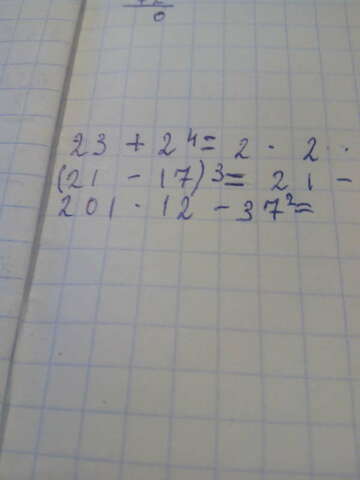 0
23 + 2⁴= 2 · 2 ·
(21 - 17)³= 21 -
201 · 12 - 37²=